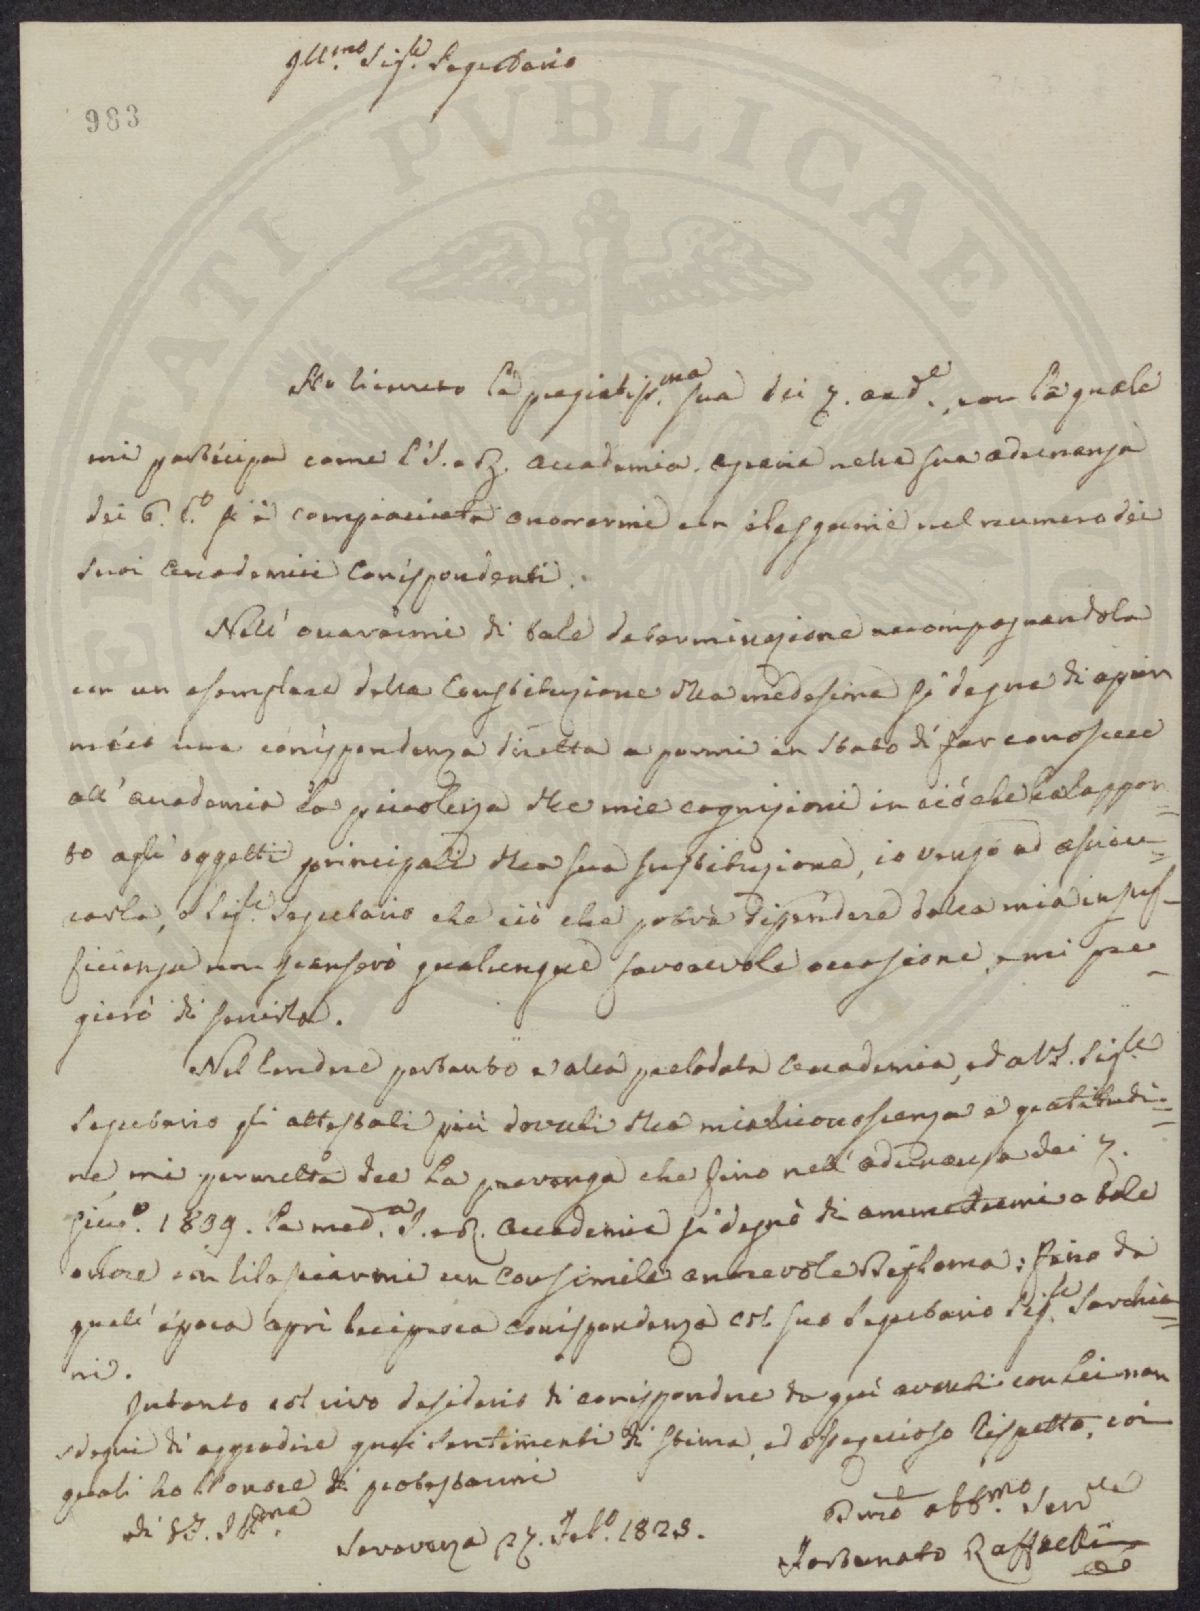 Ill.mo Sig.e Segretario
983
Ho ricevuto la pregiatiss.ma sua dei 7. and.e, con la quale
mi partecipa come l'I. e R. Accademia Aretina nella sua adunanza
dei 6. d.o si è compiaciuta onorarmi con eleggermi nel numero dei
suoi Accademici Corrispondenti.
Nell'avvisarmi di tale determinazione accompagnandola
con un esemplare della Constituzione della medesima si degna di aprir
meco una corrispondenza diretta a pormi in stato di far conoscere
all'Accademia la piccolezza delle mie cognizioni in ciò che ha rappor=
to agli oggetti principali della sua Instituzione, io vengo ad assicu=
rarla, o Sig.e Segretario che ciò che potrà dipendere dalla mia insuf=
ficienza non trascurerò qualunque favorevole occasione, e mi pre=
gierò di servirla.
Nel rendere pertanto e alla prelodata Accademia, ed a V.S. Sig.e
Segretario gli attestati più dovuti della mia riconoscenza e gratitudi=
ne mi permetta che la prevenga che fino nell'adunanza dei 7.
Giug.o 1809. la med.a I. e R. Accademia si degnò di ammettermi a tale
onore con rilasciarmi un consimile onorevole Diploma: fino da
quell'epoca aprì reciproca corrispondenza col suo Segretario Sig.e Sarchia=
ni.
Intanto col vivo desiderio di corrispondere da qui avanti con Lei non
sdegni di aggradire quei sentimenti di stima, ed ossequioso rispetto, coi
quali ho l'onore di protestarmi
di V.S. Ill.ma
Seravezza 27. Feb.o 1823.
Dev.o obb.mo Serv.e
Fortunato Raffaelli